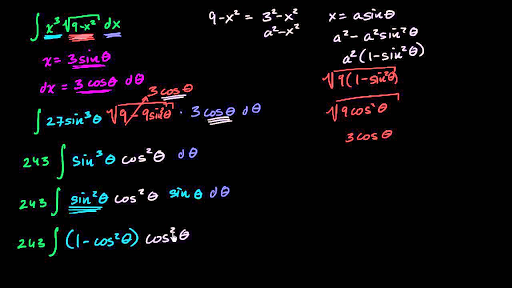 ∫ x³ √(9-x²) dx
x = 3 sin θ
dx = 3 cos θ dθ
3 cos θ
∫ 27 sin³ θ √(9 - 9 sin² θ) · 3 cos θ dθ
243 ∫ sin³ θ cos² θ dθ
243 ∫ sin² θ cos² θ sin θ dθ
243 ∫ (1 - cos² θ) cos² θ
9-x² = 3² - x²
a² - x²
x = a sin θ
a² - a² sin² θ
a² (1 - sin² θ)
√(9(1 - sin² θ))
√(9 cos² θ)
3 cos θ